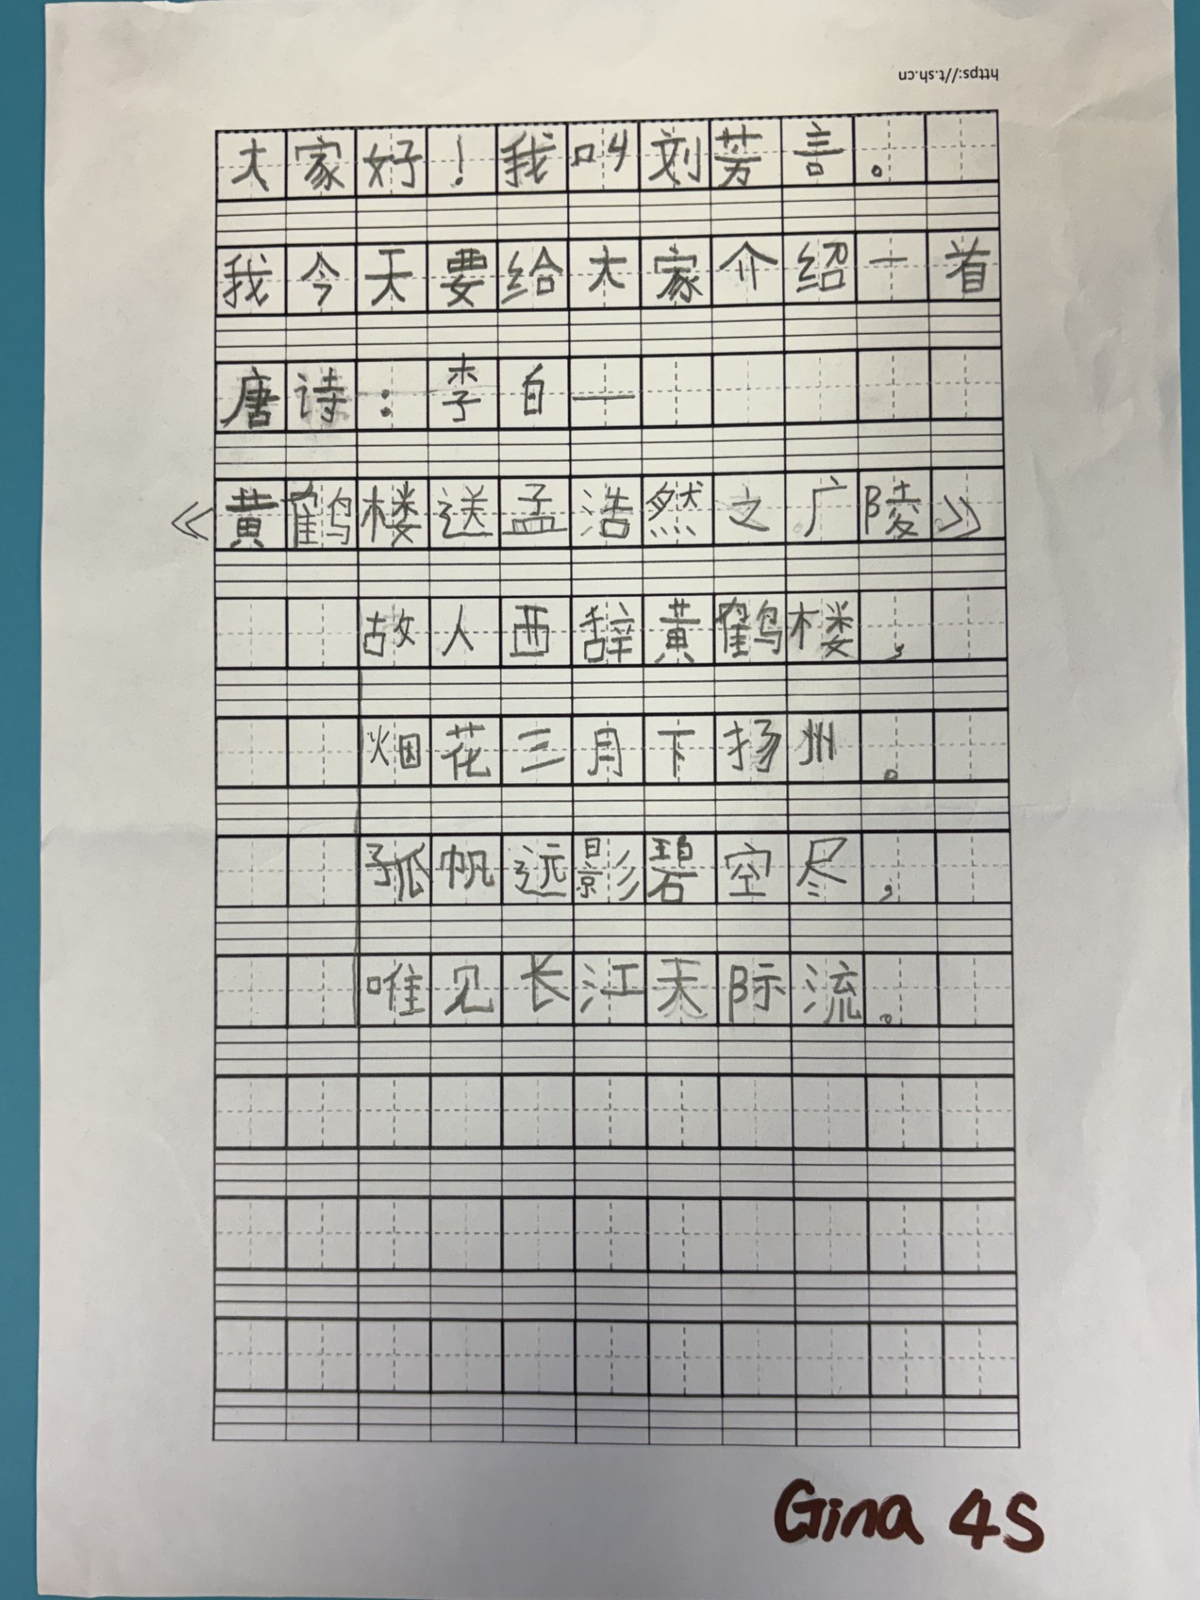 https://t.sh.cn
大家好！我叫刘芳言。
我今天要给大家介绍一首
唐诗：李白—
《黄鹤楼送孟浩然之广陵》
故人西辞黄鹤楼，
烟花三月下扬州。
孤帆远影碧空尽，
唯见长江天际流。
Gina 4S